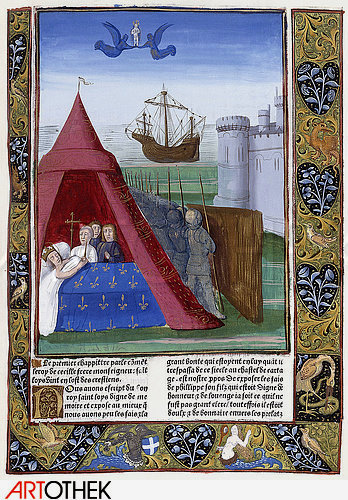 Le premier chappittre parle cōmēt
le roy de cecille frere monseigneur s̄. lt
loys vint en lost des crestiens.
Nous auons escript du bon
roy saint loys digne de me
moire et expose au mieulx q̄
nous auons peu les faiz. la
grant bonte qui estoyent en luy quāt il
trespassa de ce siecle au chastel de carta
ge. est nostre ppos de exposer les faiz
de phillippe son filz qui est digne de
honneur. z de louenge ia soit ce quil ne
fust pas grant clerc. touteffois il estoit
doulx. z de bonnaire enuers les prelatz
ARTOTHEK